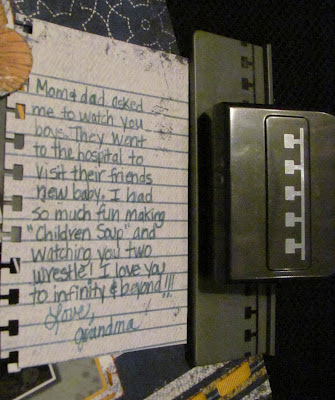 Mom & dad asked
me to watch you
boys. They went
to the hospital to
visit their friends
new baby. I had
so much fun making
"Children Soup" and
watching you two
wrestle! I love you
to infinity & beyond!!!
Love,
grandma